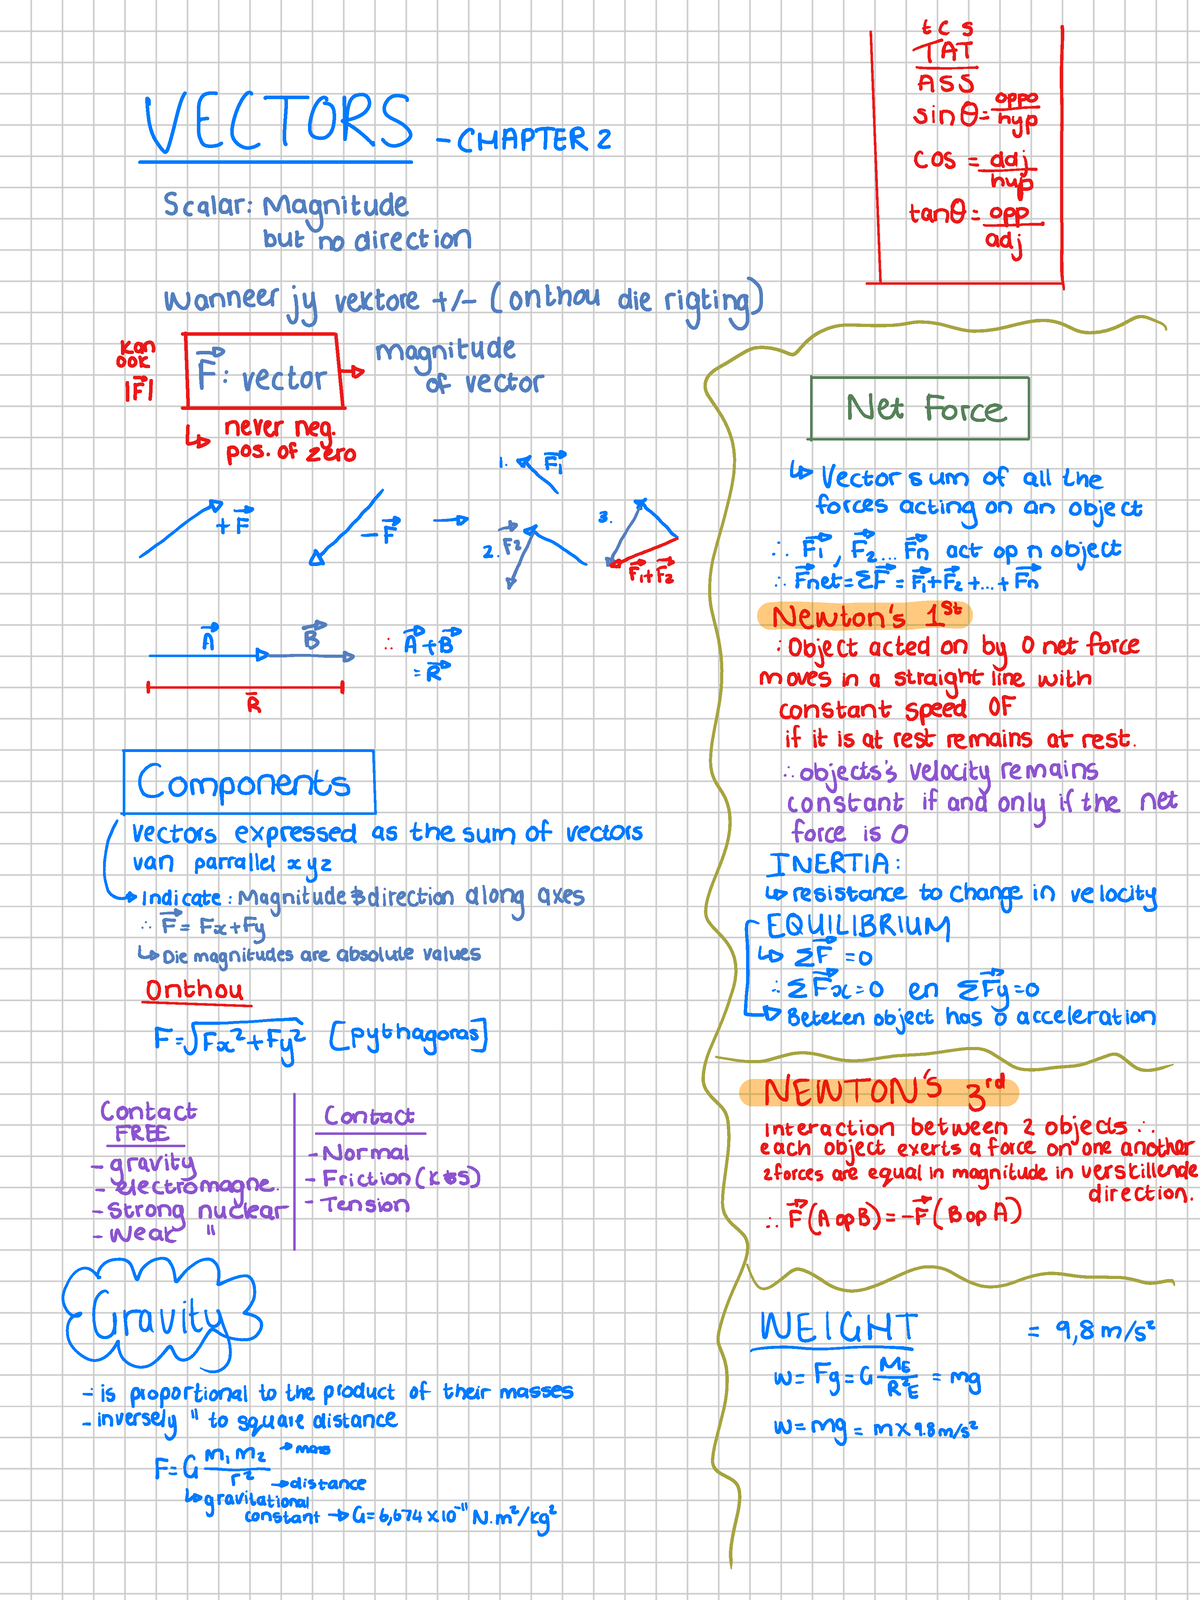 t c s
TAT
ASS
sinθ = oppo/hyp
cos = adj/hyp
tanθ = opp/adj
VECTORS - CHAPTER 2
Scalar: Magnitude
but no direction
Wanneer jy vektore +/- (onthou die rigting)
kan
ook
|F⃗|
F⃗: vector → magnitude
of vector
↳ never neg.
pos. of zero
+F⃗
-F⃗ →
1. F₁⃗
2. F₂⃗
3.
F₁⃗+F₂⃗
A⃗ B⃗ ∴ A⃗+B⃗
= R⃗
R̄
Components
vectors expressed as the sum of vectors
van parrallel x y z
→ Indicate: Magnitude & direction along axes
∴ F⃗ = Fx+Fy
↳ Die magnitudes are absolute values
Onthou
F=√Fx²+Fy² [pythagoras]
Contact
FREE
- gravity
- electromagne.
- Strong nuclear
- Weak "
Contact
- Normal
- Friction (K&S)
- Tension
Gravity
- is proportional to the product of their masses
- inversely " to square distance
F= G m₁ m₂/r² → mass
→ distance
↳ gravitational
constant → G= 6,674 × 10⁻¹¹ N.m²/kg²
Net Force
↳ Vector sum of all the
forces acting on an object
∴ F₁⃗, F₂⃗... Fn⃗ act op n object
∴ F⃗net = ΣF⃗ = F₁⃗+F₂⃗+...+Fn⃗
Newton's 1st
: Object acted on by 0 net force
moves in a straight line with
constant speed OF
if it is at rest remains at rest.
∴ objects's velocity remains
constant if and only if the net
force is 0
INERTIA:
↳ resistance to change in velocity
EQUILIBRIUM
↳ ΣF⃗ = 0
∴ ΣF⃗x=0 en ΣF⃗y=0
→ Beteken object has 0 acceleration
NEWTON'S 3rd
Interaction between 2 objects ∴
each object exerts a force on one another
2 forces are equal in magnitude in verskillende
direction.
∴ F⃗(A op B) = -F⃗(B op A)
WEIGHT = 9,8 m/s²
w= Fg = G ME/R²E = mg
w= mg = m × 9.8 m/s²